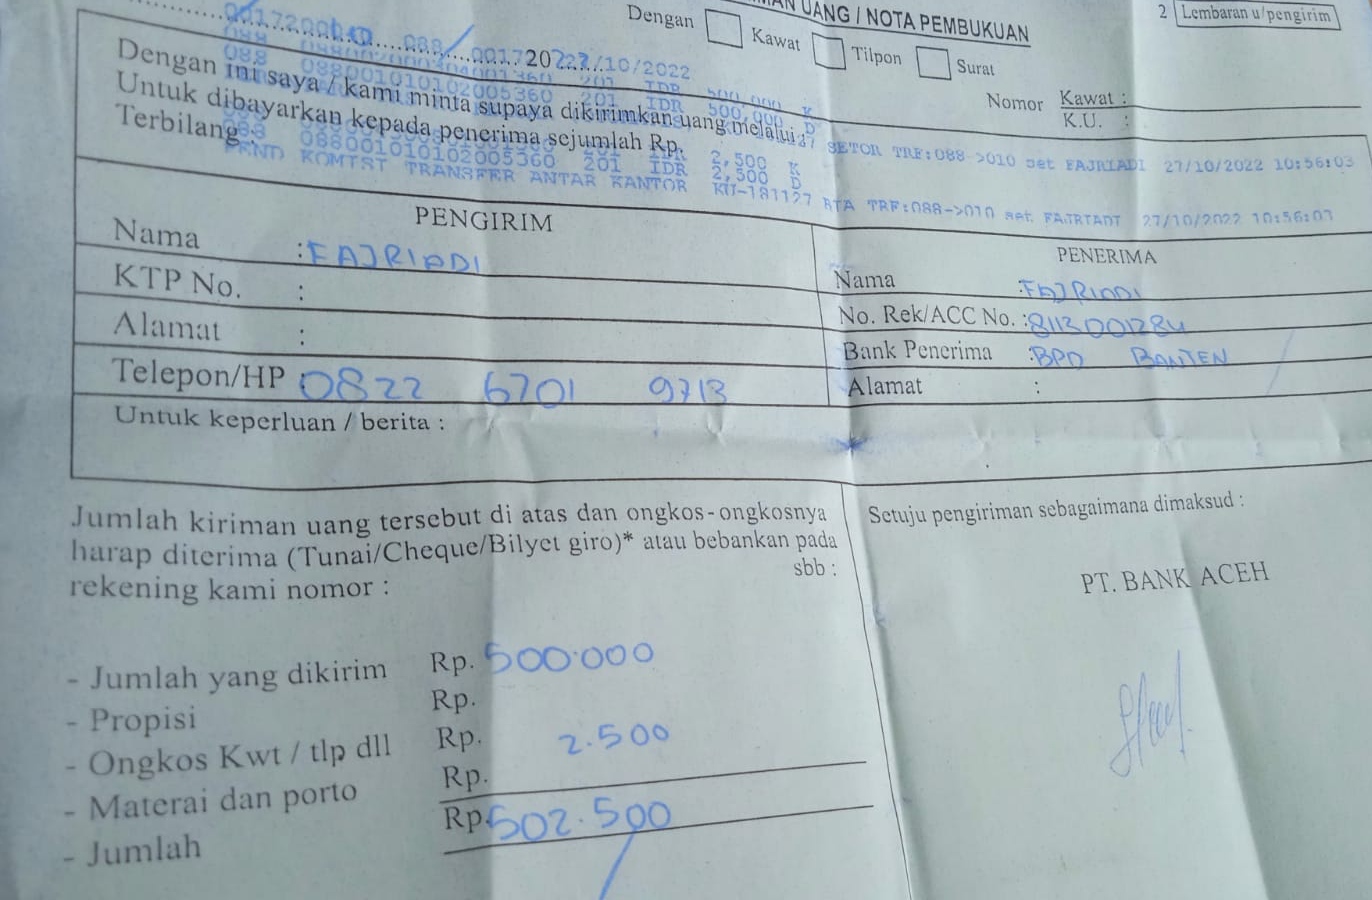 UANG / NOTA PEMBUKUAN
2 Lembaran u/pengirim
Dengan Kawat Tilpon Surat
27/10/2022
Nomor Kawat :
K.U. :
Dengan ini saya / kami minta supaya dikirimkan uang melalui
Untuk dibayarkan kepada penerima sejumlah Rp.
Terbilang
201 IDR 500,000 K
088 088001010102005360 201 IDR 500,000 D
SETOR TRF:088 ->010 set FAJRIADI 27/10/2022 10:56:03
201 IDR 2,500 K
088001010102005360 201 IDR 2,500 D
PEND KOMIST TRANSFER ANTAR KANTOR KU-181127 RTA TRF:088->010 set FAJRIADI 27/10/2022 10:56:07
PENGIRIM
Nama : FAJRIADI
KTP No. :
Alamat :
Telepon/HP : 0822 6701 9713
Untuk keperluan / berita :
PENERIMA
Nama : FAJRIADI
No. Rek/ACC No. : 8113001284
Bank Penerima : BPD BANTEN
Alamat :
Jumlah kiriman uang tersebut di atas dan ongkos-ongkosnya
harap diterima (Tunai/Cheque/Bilyet giro)* atau bebankan pada
rekening kami nomor : sbb :
Setuju pengiriman sebagaimana dimaksud :
PT. BANK ACEH
- Jumlah yang dikirim Rp. 500.000
- Propisi Rp.
- Ongkos Kwt / tlp dll Rp. 2.500
- Materai dan porto Rp.
- Jumlah Rp. 502.500